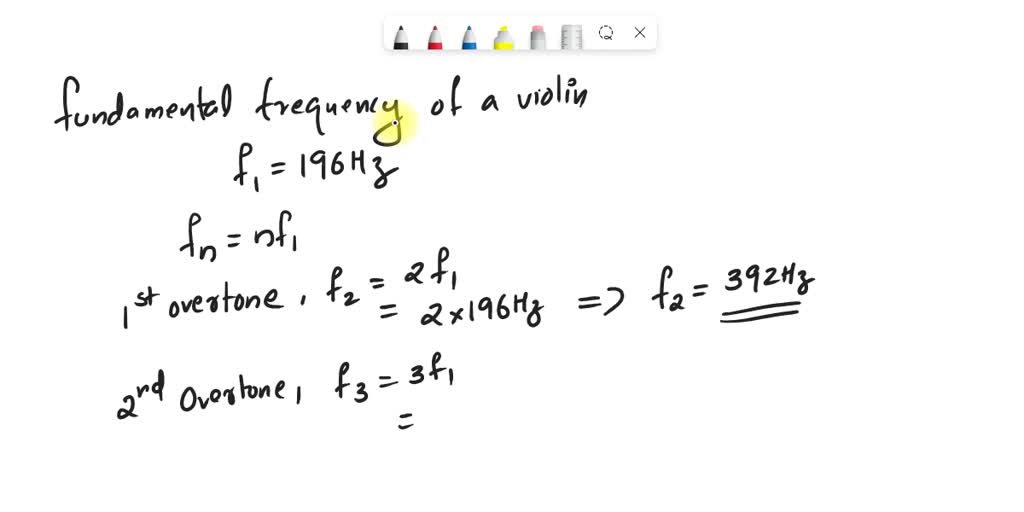 fundamental frequency of a violin
f₁ = 196Hz
fₙ = nf₁
1st overtone, f₂ = 2f₁
= 2×196Hz => f₂ = 392Hz
2nd Overtone, f₃ = 3f₁
=